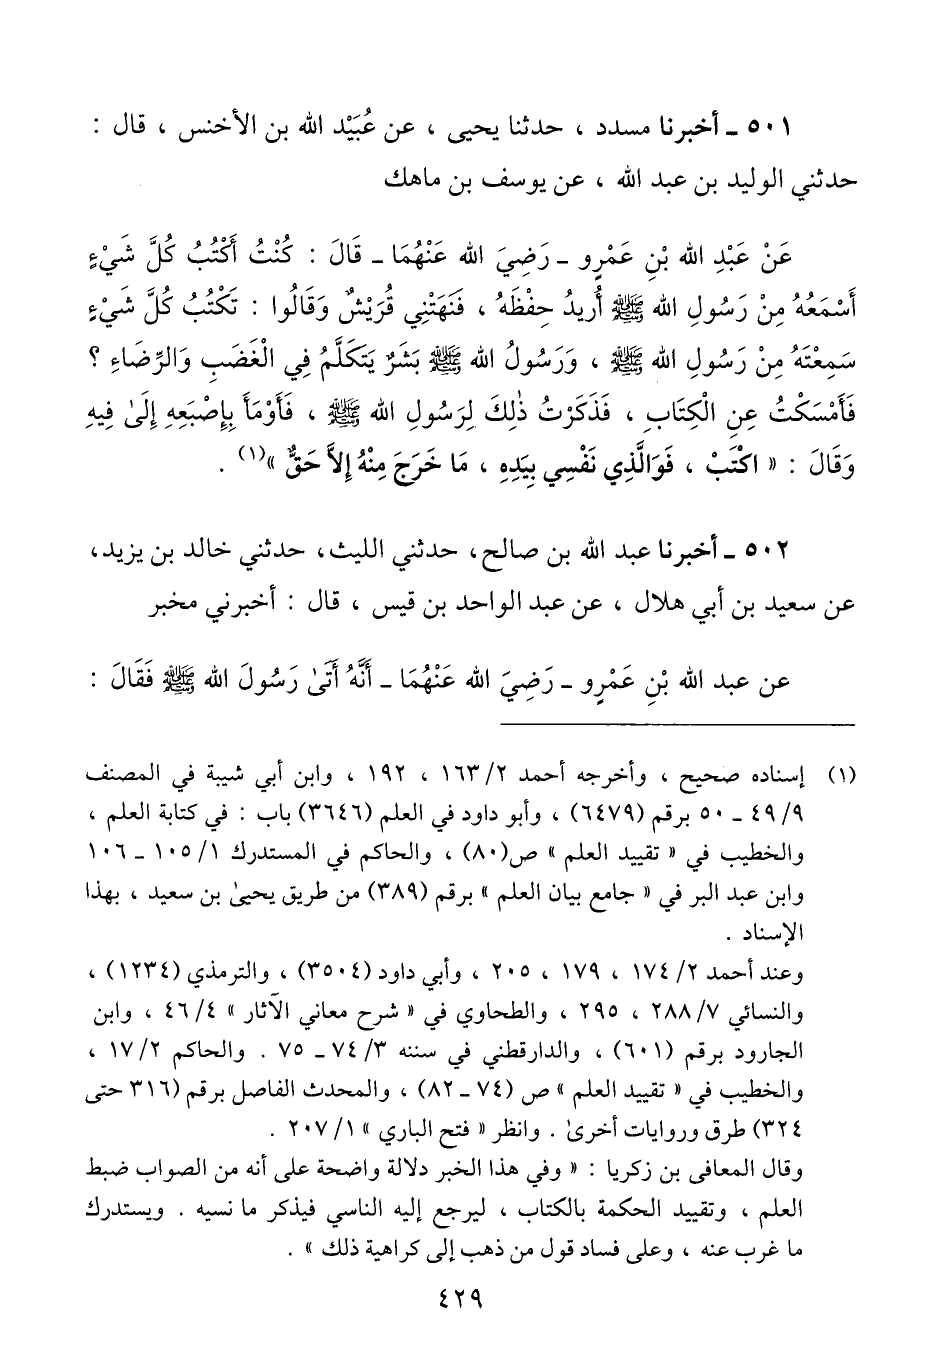 ٥٠١ ـ أخبرنا مسدد ، حدثنا يحيى ، عن عُبَيْد الله بن الأخنس ، قال :
حدثني الوليد بن عبد الله ، عن يوسف بن ماهك
عَنْ عَبْدِ الله بْنِ عَمْرٍو ـ رَضِيَ الله عَنْهُمَا ـ قَالَ : كُنْتُ أَكْتُبُ كُلَّ شَيْءٍ
أَسْمَعُهُ مِنْ رَسُولِ الله ﷺ أُرِيدُ حِفْظَهُ ، فَنَهَتْنِي قُرَيْشٌ وَقَالُوا : تَكْتُبُ كُلَّ شَيْءٍ
سَمِعْتَهُ مِنْ رَسُولِ الله ﷺ ، وَرَسُولُ الله ﷺ بَشَرٌ يَتَكَلَّمُ فِي الْغَضَبِ وَالرِّضَاءِ ؟
فَأَمْسَكْتُ عِنِ الْكِتَابِ ، فَذَكَرْتُ ذٰلِكَ لِرَسُولِ الله ﷺ ، فَأَوْمَأَ بِإِصْبَعِهِ إِلَىٰ فِيهِ
وَقَالَ : « اكْتَبْ ، فَوَالَّذِي نَفْسِي بِيَدِهِ ، مَا خَرَجَ مِنْهُ إِلاَّ حَقٌّ »(١) .
٥٠٢ ـ أخبرنا عبد الله بن صالح، حدثني الليث، حدثني خالد بن يزيد،
عن سعيد بن أبي هلال ، عن عبد الواحد بن قيس ، قال : أخبرني مخبر
عن عبد الله بْنِ عَمْرٍو ـ رَضِيَ الله عَنْهُمَا ـ أَنَّهُ أَتَىٰ رَسُولَ الله ﷺ فَقَالَ :
(١) إسناده صحيح ، وأخرجه أحمد ٢/ ١٦٣ ، ١٩٢ ، وابن أبي شيبة في المصنف
٩/ ٤٩ ـ ٥٠ برقم (٦٤٧٩) ، وأبو داود في العلم (٣٦٤٦) باب : في كتابة العلم ،
والخطيب في « تقييد العلم » ص(٨٠) ، والحاكم في المستدرك ١/ ١٠٥ ـ ١٠٦
وابن عبد البر في « جامع بيان العلم » برقم (٣٨٩) من طريق يحيىٰ بن سعيد ، بهذا
الإسناد .
وعند أحمد ٢/ ١٧٤ ، ١٧٩ ، ٢٠٥ ، وأبي داود (٣٥٠٤) ، والترمذي (١٢٣٤) ،
والنسائي ٧/ ٢٨٨ ، ٢٩٥ ، والطحاوي في « شرح معاني الآثار » ٤/ ٤٦ ، وابن
الجارود برقم (٦٠١) ، والدارقطني في سننه ٣/ ٧٤ ـ ٧٥ . والحاكم ٢/ ١٧ ،
والخطيب في « تقييد العلم » ص (٧٤ ـ ٨٢) ، والمحدث الفاصل برقم (٣١٦ حتى
٣٢٤) طرق وروايات أخرىٰ . وانظر « فتح الباري » ١/ ٢٠٧ .
وقال المعافى بن زكريا : « وفي هذا الخبر دلالة واضحة على أنه من الصواب ضبط
العلم ، وتقييد الحكمة بالكتاب ، ليرجع إليه الناسي فيذكر ما نسيه . ويستدرك
ما غرب عنه ، وعلى فساد قول من ذهب إلى كراهية ذلك » .
٤٢٩